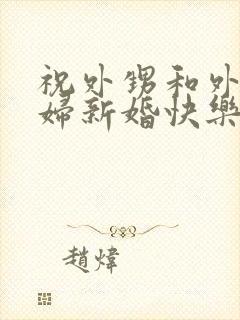 祝外甥和外
婦新婚快樂
趙煒